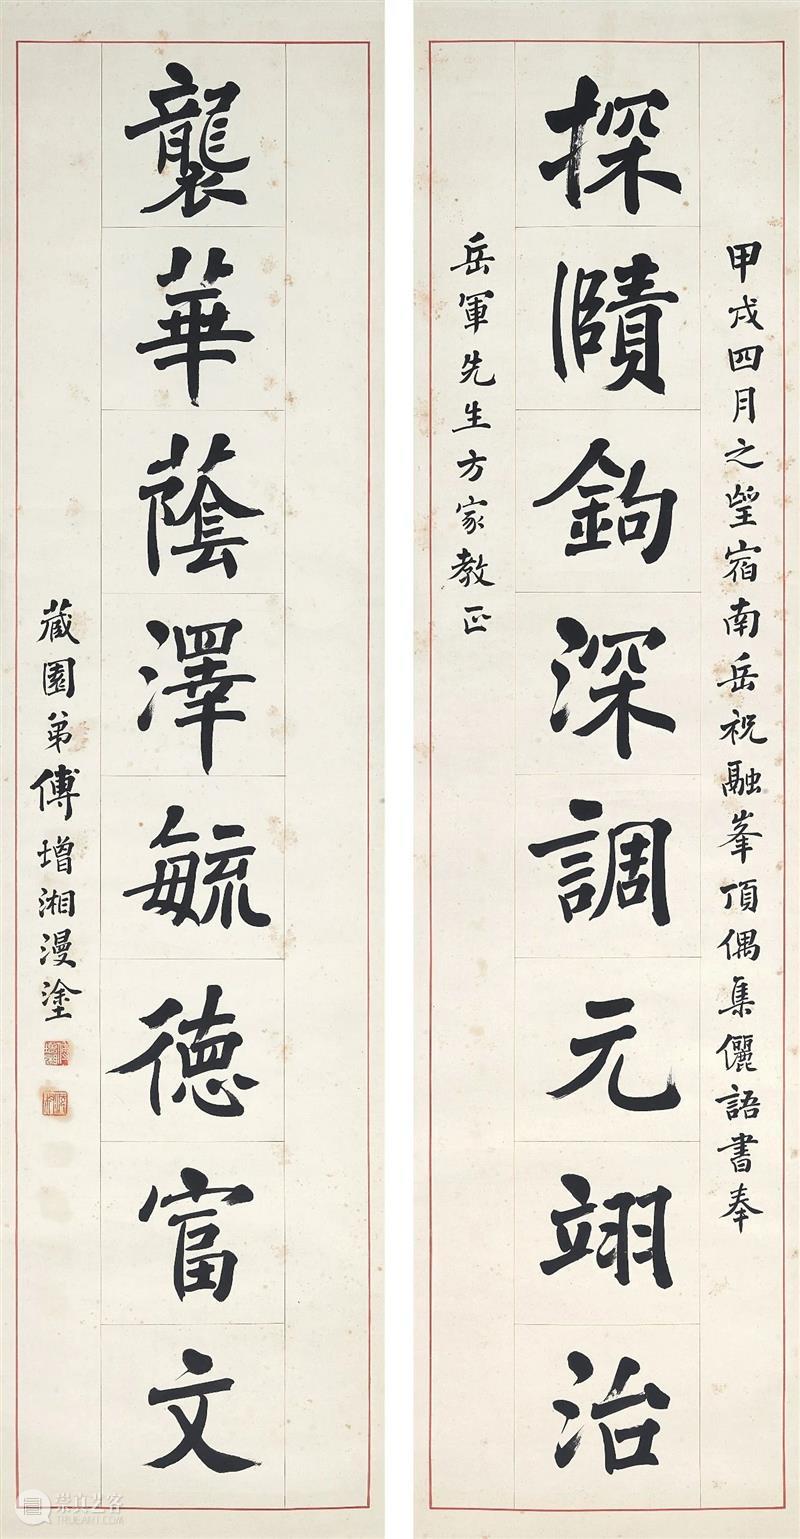 甲戌四月之望宿南岳祝融峯頂偶集儷語書奉
探賾鉤深調元翊治
岳軍先生方家教正
襲華蔭澤毓徳富文
藏園弟傅增湘漫塗
崇真艺客
TRUEART.COM